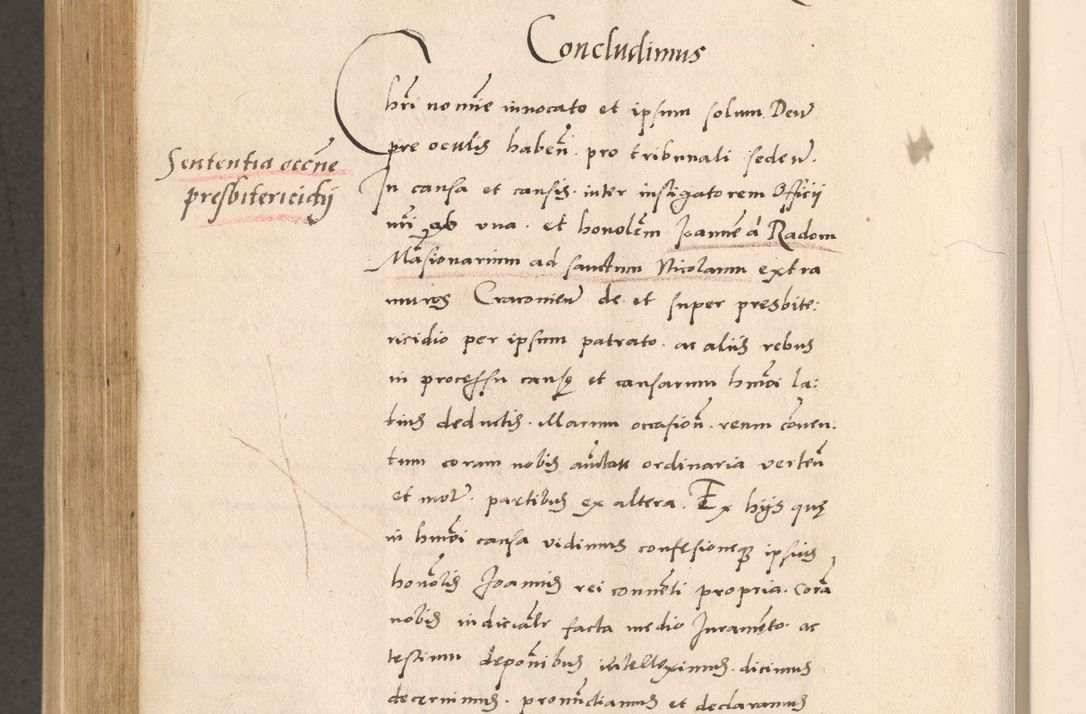 Concludimus
Chri nomine innocato et ipsum solum Deu
pre oculis haben. pro tribunali seden.
Sententia occne
presbitericidij
In causa et causis. inter instigatorem Officij
nri ab una. et honolem Joannem á Radom
Mansionarium ad sanctum Nicolaum extra
muros Cracovien de et super presbite:
ricidio per ipsum patrato. ac aliis rebus
in processu causę et causarum hmoi la:
tius deductis. illarum occasion. reum conven:
tum coram nobis auctate ordinaria verten
et mot. partibus ex altera. Ex hijs quę
in hmoi causa vidimus confesioneque ipsius
honolis Joannis rei conventi propria. Corā
nobis indicialr facta medio Juramento. ac
testium deponibus intelleximus. dicimus
decernimus. pronuctiamus et declaramus